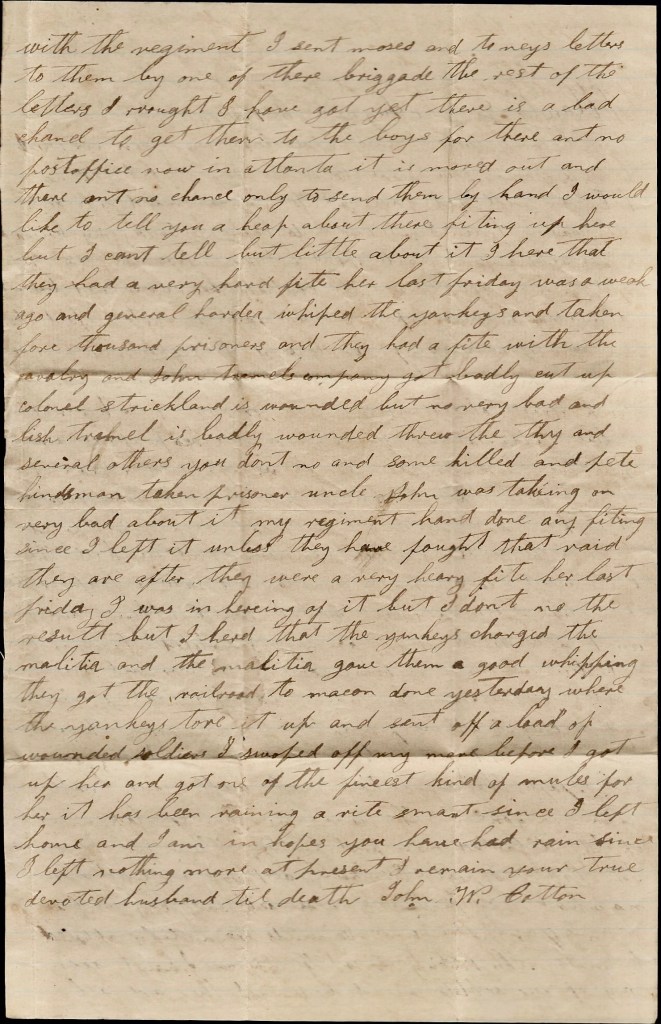 with the regiment I sent moses and toneys letters
to them by one of there briggade the rest of the
letters I brought I have got yet there is a bad
chanc to get them to the boys for there ant no
postoffice now in atlanta it is moved out and
there ant no chanc only to send them by hand I would
like to tell you a heap about there fiting up here
but I cant tell but little about it I here that
they had a very hard fite her last friday was a weak
ago and general hardea whiped the yankeys and taken
fore thousand prisoners and they had a fite with the
cavalry and John tramels company got badly cut up
colonel strickland is wounded but no very bad and
lish tramel is badly wounded threw the thy and
several others you dont no and some killed and pete
hindsman taken prisoner uncle John was takeing on
very bad about it my regiment hand done any fiting
since I left it unless they have fought that raid
they are after they were a very heavy fite her last
friday I was in hereing of it but I dont no the
result but I herd that the yankeys charged the
malitia and the malitia gave them a good whipping
they got the railroad to macon done yesterday where
the yankeys tore it up and sent off a load of
wounded soldiers I swoped off my mare before I got
up her and got one of the fineest kind of mules for
her it has been raining a rite smart since I left
home and I am in hopes you have had rain since
I left nothing more at present I remain your true
devoted husband til death John W. Cotton